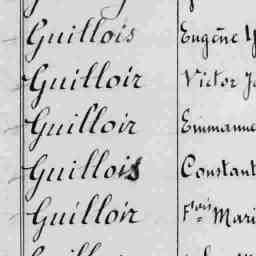 Guillois Eugène
Guilloir Victor
Guilloir Emmanue
Guillois Constant
Guilloir Fçois Mari